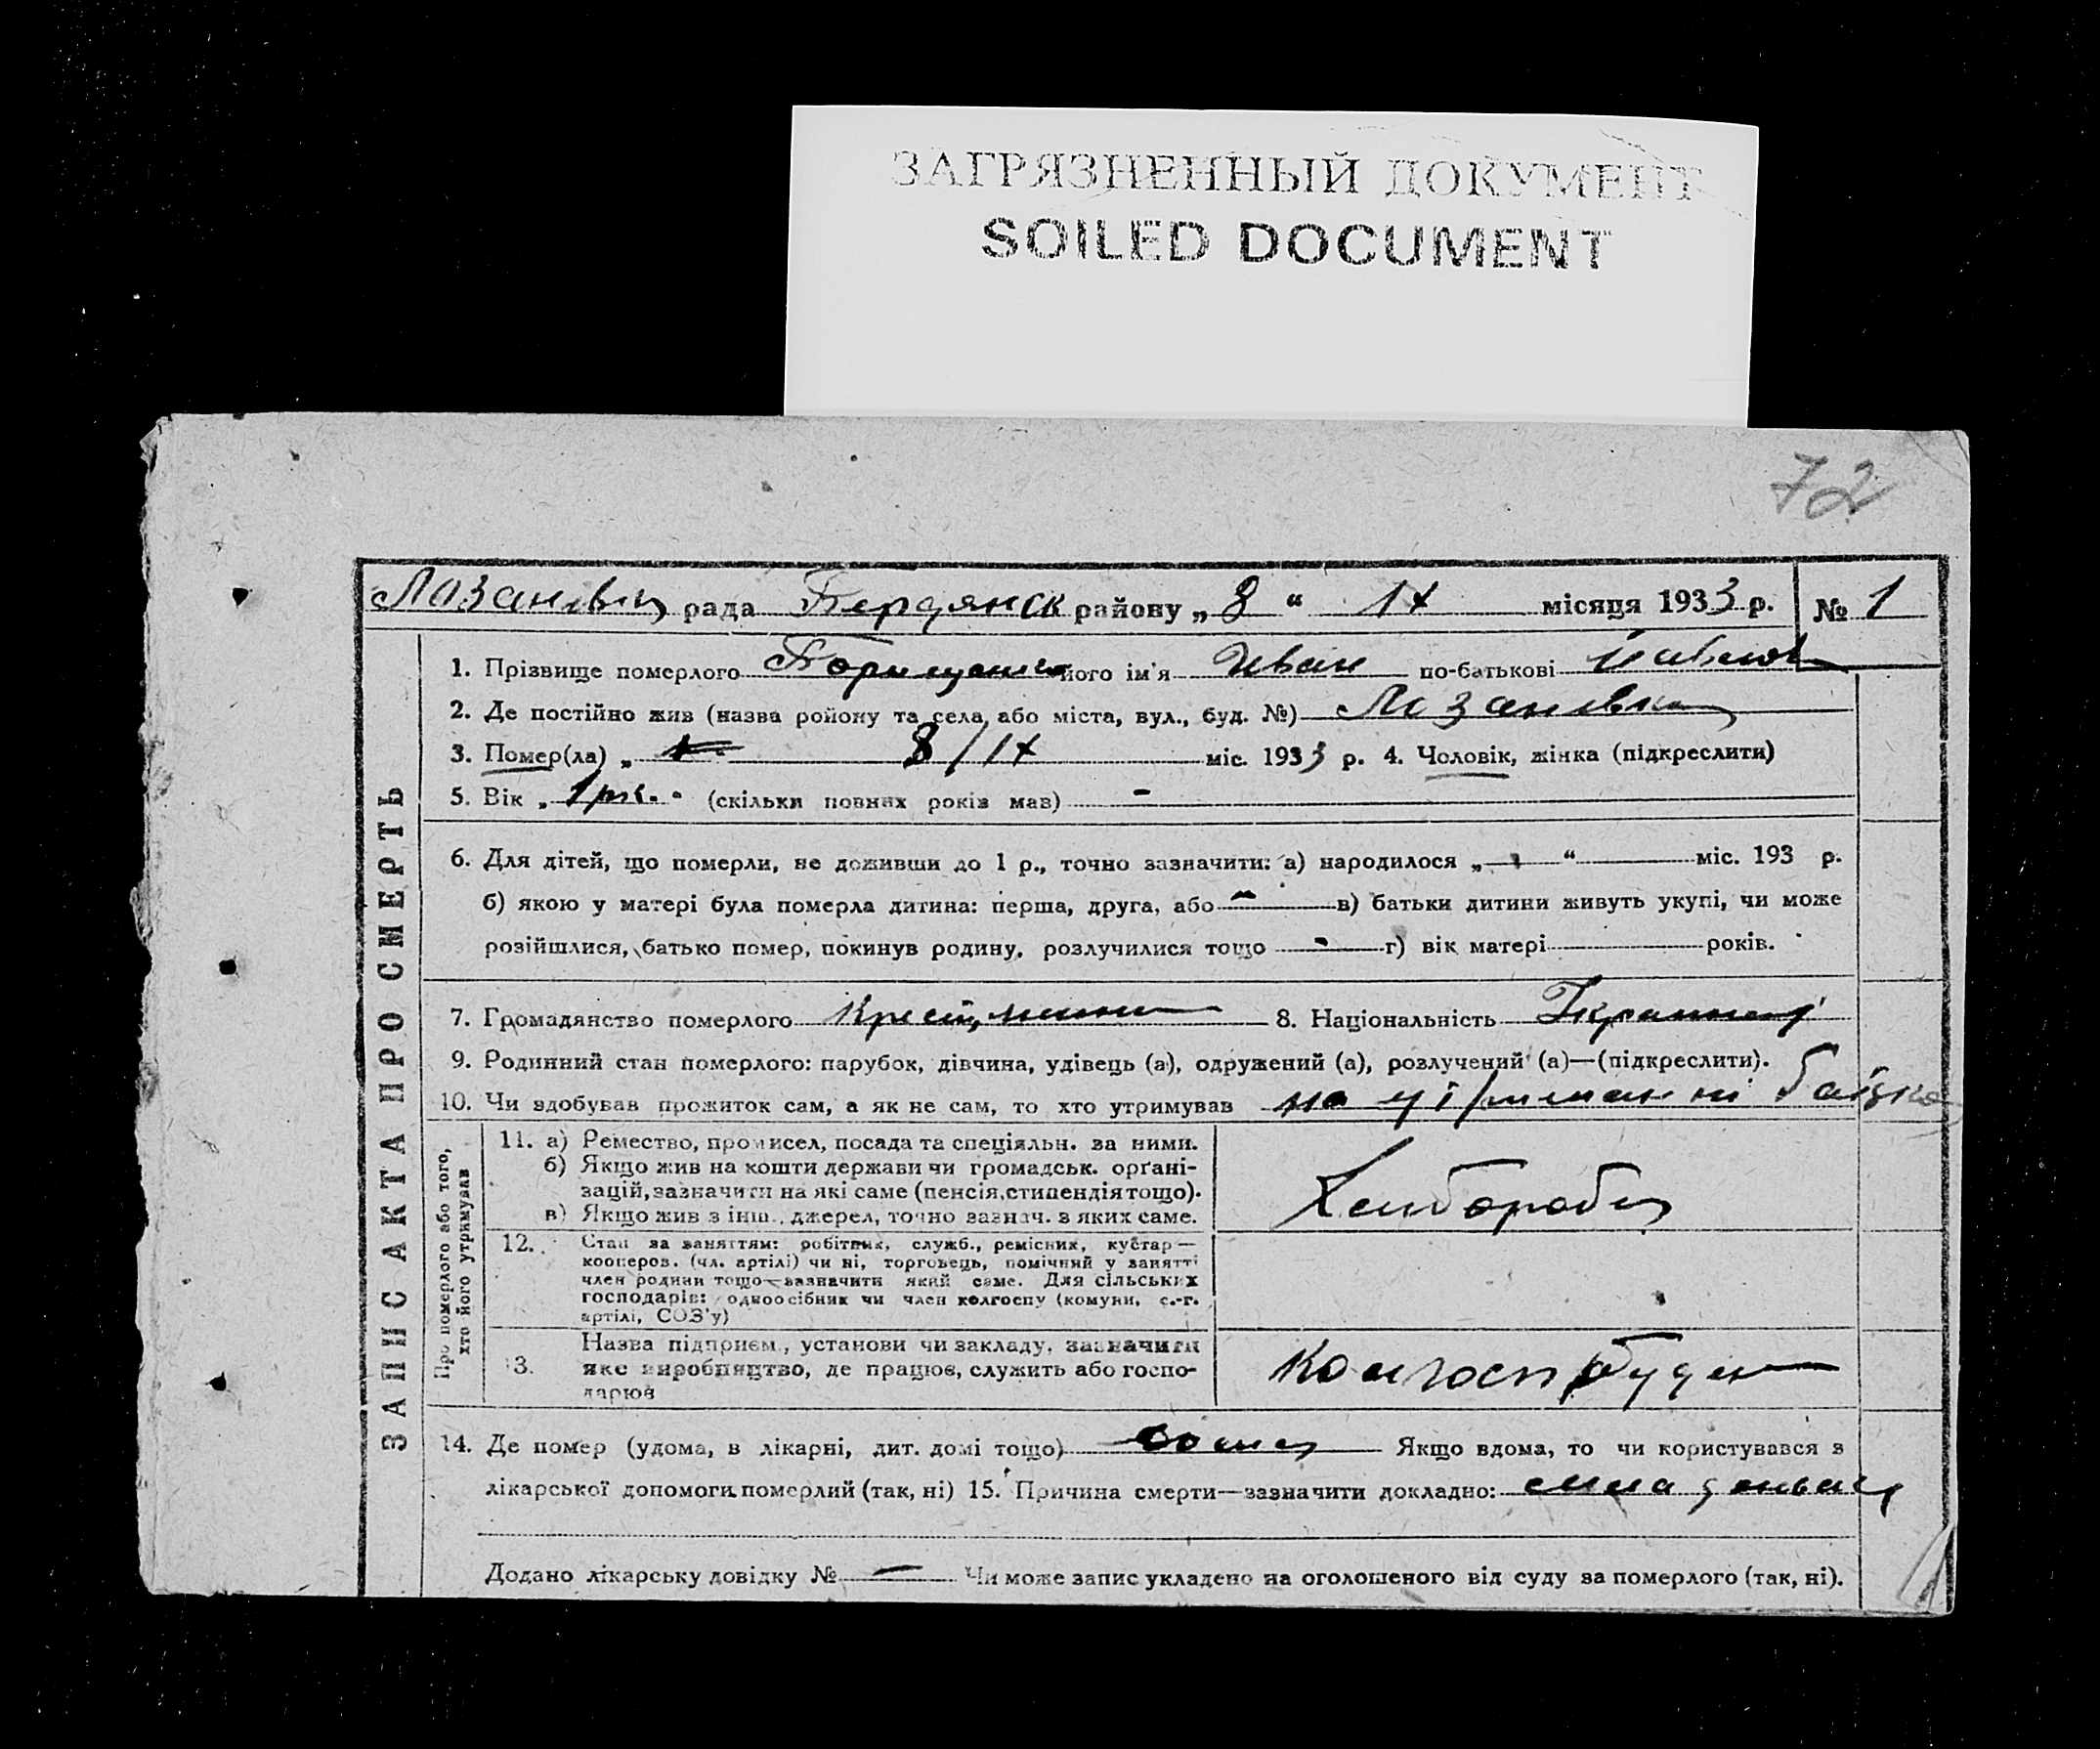 ЗАГРЯЗНЕННЫЙ ДОКУМЕНТ
SOILED DOCUMENT
72
рада Бердянск району „ 8 “ IX місяця 1933 р. № 1
ЗАПИС АКТА ПРО СМЕРТЬ
1. Прізвище померлого його ім'я Иван по-батькові
2. Де постійно жив (назва ройону та села, або міста, вул., буд. №) Лозановка
3. Помер(ла) „ 8/IX міс. 1933 р. 4. Чоловік, жінка (підкреслити)
5. Вік „ 1 рік. (скільки повних років мав) -
6. Для дітей, що померли, не доживши до 1 р., точно зазначити: а) народилося „ “ міс. 193 р.
б) якою у матері була померла дитина: перша, друга, або - в) батьки дитини живуть укупі, чи може
розійшлися, батько помер, покинув родину, розлучилися тощо - г) вік матері років.
7. Громадянство померлого 8. Національність
9. Родинний стан померлого: парубок, дівчина, удівець (а), одружений (а), розлучений (а)—(підкреслити).
10. Чи здобував прожиток сам, а як не сам, то хто утримував на утриманні
Про померлого або того,
хто його утримував
11. а) Ремество, промисел, посада та спеціяльн. за ними.
б) Якщо жив на кошти держави чи громадськ. орґані-
зацій, зазначити на які саме (пенсія, стипендія тощо).
в) Якщо жив з інш. джерел, точно зазнач. з яких саме.
Хлибороб
12. Стан за заняттям: робітник, служб., ремісник, кустар—
кооперов. (чл. артілі) чи ні, торговець, помічний у занятті
член родини тощо—зазначити який саме. Для сільських
господарів: одноосібник чи член колгоспу (комуни, с.-г.
артілі, СОЗ'у)
13. Назва підприєм., установи чи закладу, зазначити
яке виробництво, де працює, служить або госпо-
дарює
Колгосп
14. Де помер (удома, в лікарні, дит. домі тощо) Якщо вдома, то чи користувався з
лікарської допомоги померлий (так, ні) 15. Причина смерти—зазначити докладно:
Додано лікарську довідку № — Чи може запис укладено на оголошеного від суду за померлого (так, ні).